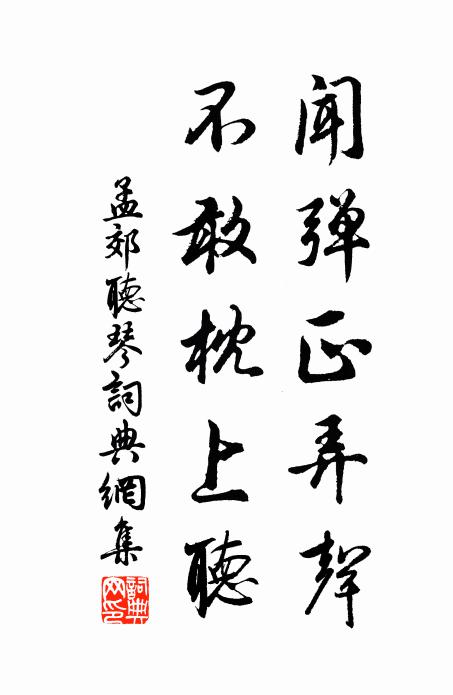 闻弹正弄聲
不敢枕上聽
孟郊聽琴詞典網集
詞典网印